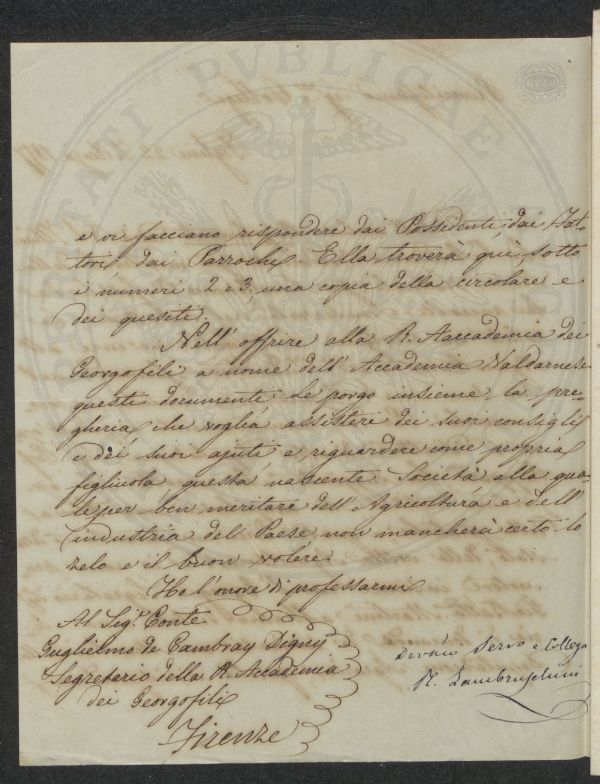 e vi facciano rispondere dai Possidenti, dai Fat-
tori, dai Parrochi. Ella troverà quì sotto
i numeri 2 e 3, una copia della circolare e
dei quesiti.
Nell' offrire alla R. Aaccademia dei
Georgofili a nome dell' Accademia Valdarnese
questi documenti Le porgo insieme, la pre-
ghiera, che voglia assistere dei suoi consigli
e dei suoi ajuti e riguardare come propria
figliuola questa nascente Società alla qua-
le per ben meritare dell' Agricoltura e dell'
industria del Paese non mancherà certo lo
zelo e il buon volere.
Ho l'onore di professarmi
Al Sig.r Conte
Guglielmo de Cambray Digny
Segretario della R. Accademia
dei Georgofili
Firenze
Dev.mo Servo e Collega
R. Lambruschini